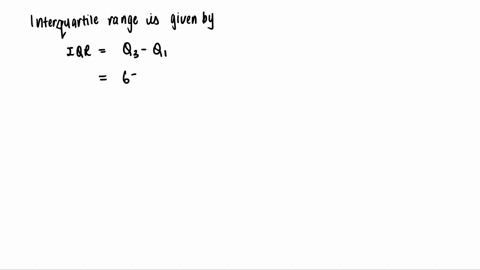 Interquartile range is given by
IQR = Q₃ - Q₁
= 6-